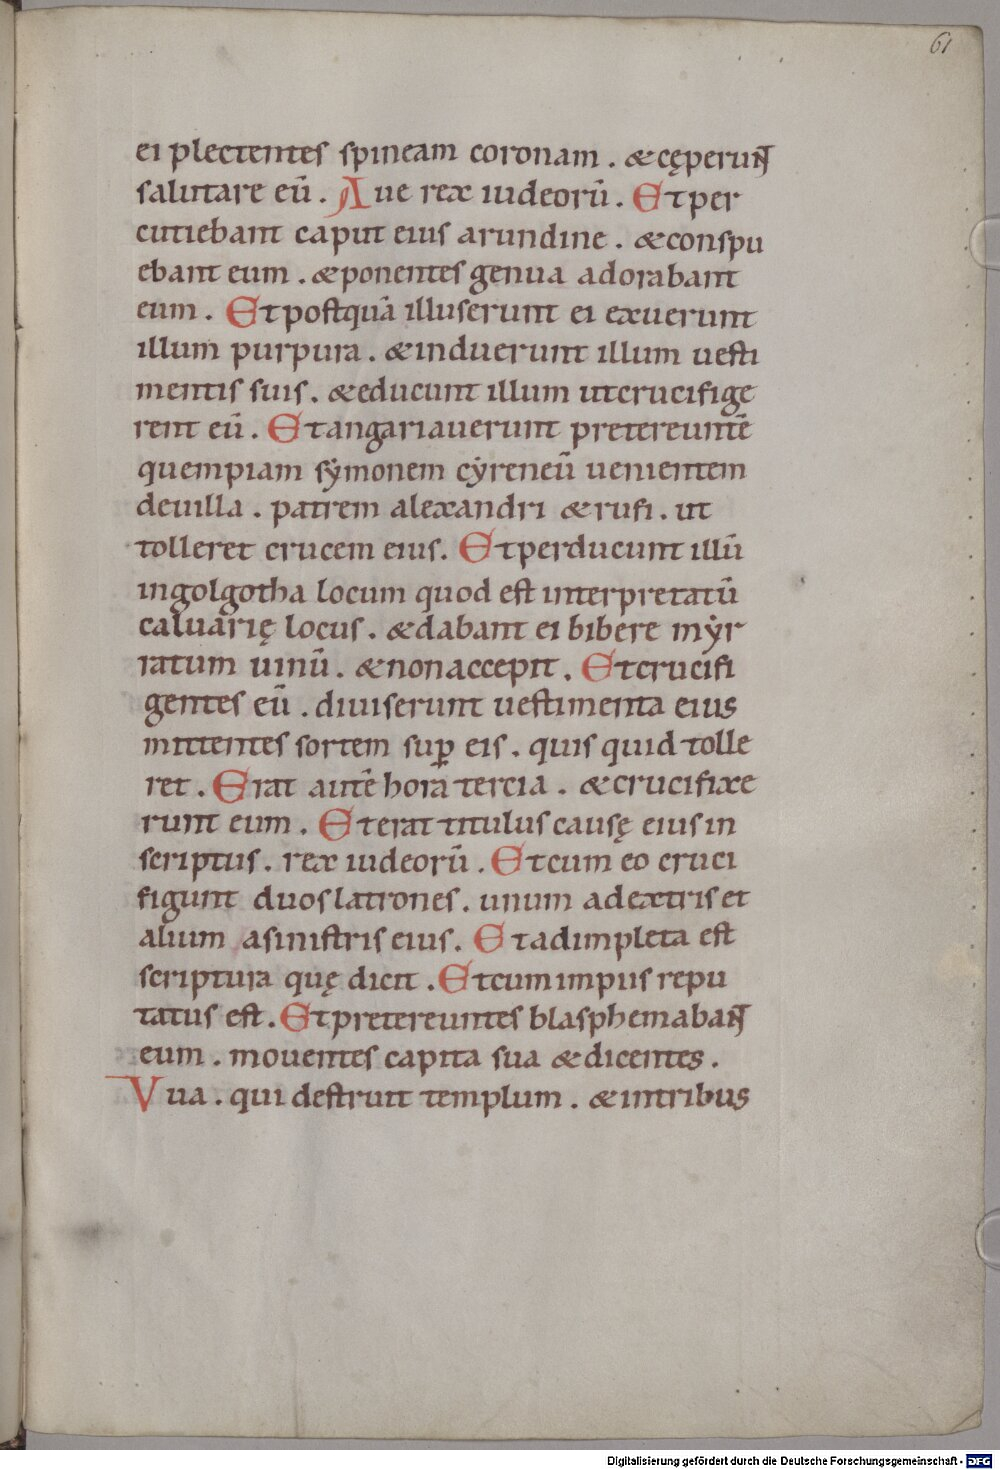 61
ei plectentes spineam coronam . & cęperunt
salutare eū . Aue rex iudeorū . Et per
cutiebant caput eius arundine . & conspu
ebant eum . & ponentes genua adorabant
eum . Et postquā illuserunt ei exuerunt
illum purpura . & induerunt illum uesti
mentis suis . & educunt illum ut crucifige
rent eū . Et angariauerunt pretereuntē
quempiam sẏmonem cẏreneū uenientem
de uilla . patrem alexandri & rufi . ut
tolleret crucem eius . Et perducunt illū
in golgotha locum quod est interpretatū
caluarię locus . & dabant ei bibere mẏr
ratum uinū . & non accepit . Et crucifi
gentes eū . diuiserunt uestimenta eius
mittentes sortem suꝑ eis . quis quid tolle
ret . Erat autē hora tercia . & crucifixe
runt eum . Et erat titulus causę eius in
scriptus . rex iudeorū . Et cum eo cruci
figunt duos latrones . unum a dextris et
alium a sinistris eius . Et adimpleta est
scriptura quę dicit . Et cum impiis repu
tatus est . Et pretereuntes blasphemabant
eum . mouentes capita sua & dicentes .
Vua . qui destruit templum . & in tribus
Digitalisierung gefördert durch die Deutsche Forschungsgemeinschaft - DFG